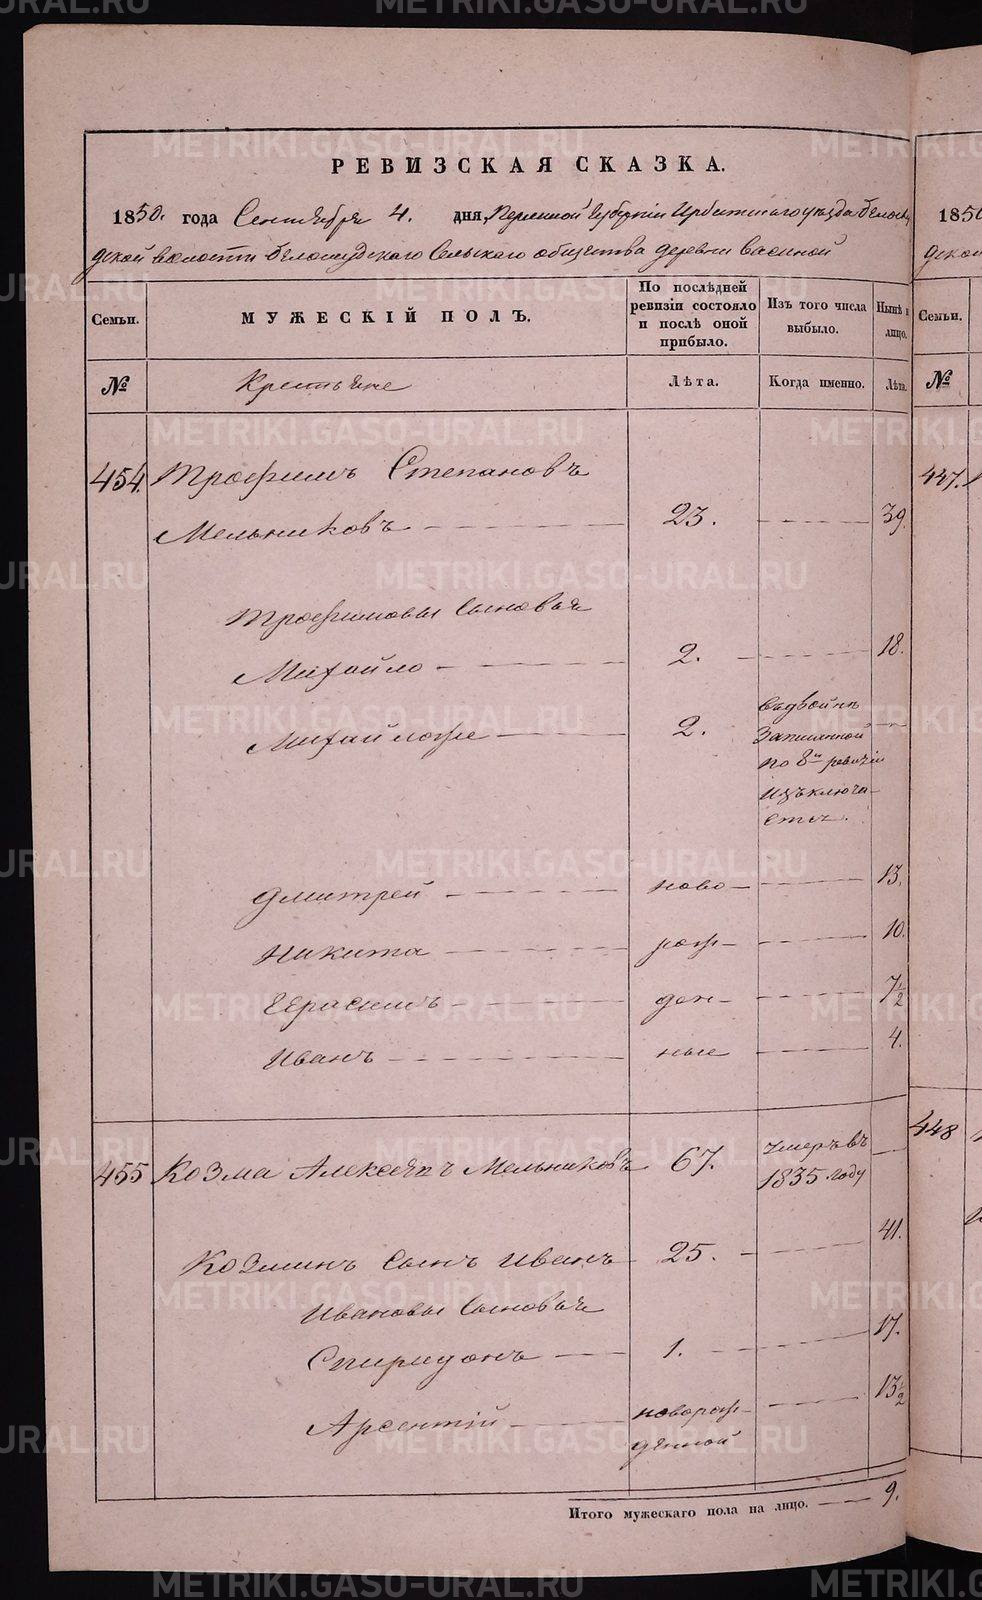 METRIKI.GASO-URAL.RU
РЕВИЗСКАЯ СКАЗКА.
1850. года Сентября 4. дня, Пермской Губерніи Ирбитскаго уѣзда Белослу
дской волости Белослудскаго Сельскаго общества деревни Васиной
Семьи. МУЖЕСКІЙ ПОЛЪ. По послѣдней ревизіи состояло и послѣ оной прибыло. Изъ того числа выбыло. Нынѣ на лицо.
№ Крестьяне Лѣта. Когда именно. Лѣта.
454. Трофимъ Степановъ
Мельниковъ 23. 39.
Трофимовы Сыновья
Михайло 2. 18.
Михайло же 2. Съдвойнѣ
Записанной
по 8й ревизіи
изъключа-
етъ.
Дмитрей ново- 13.
Никита рож- 10.
Герасимъ ден- 7 1/2
Иванъ ные 4.
455 Козма Алексѣевъ Мельниковъ 67. Умеръ въ
1835 году
Козминъ Сынъ Иванъ 25. 41.
Ивановы Сыновья
Спиридонъ 1. 17.
Арсентій новорож-
денной 13 1/2
Итого мужескаго пола на лицо. 9.
1850
дской
Семьи.
№
447.
448